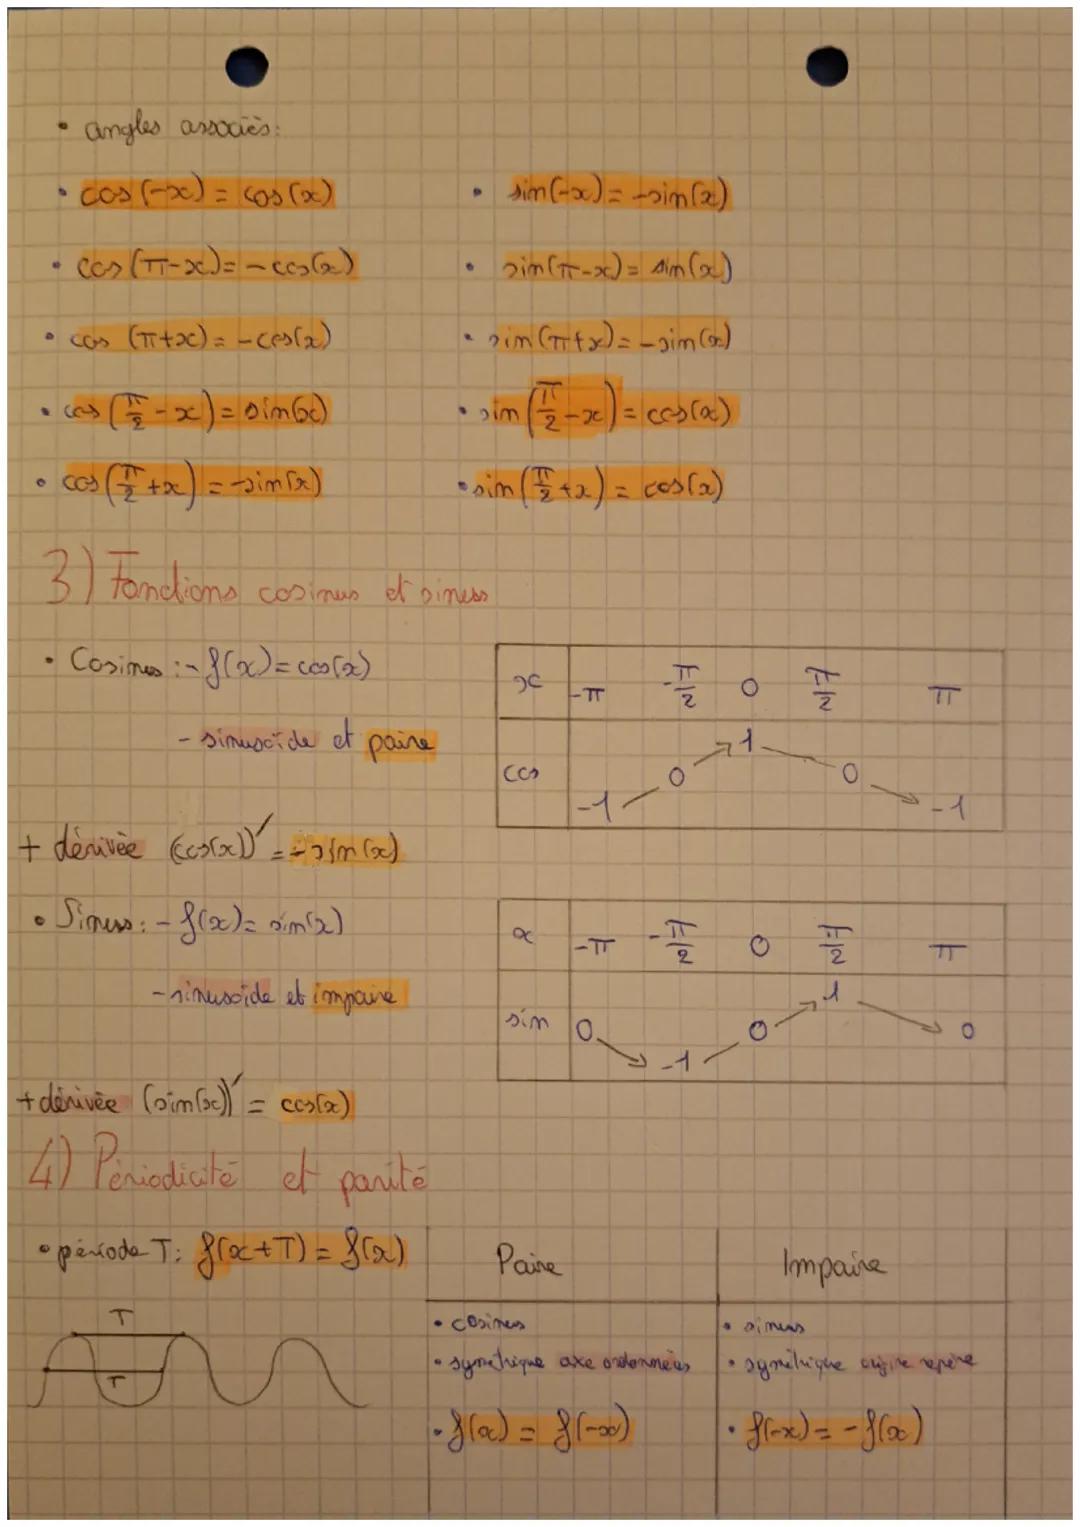 • angles associés:
• cos(-x) = cos(x)
• sin(-x) = -sin(x)
• cos(π-x) = -cos(x)
• sin(π-x) = sin(x)
• cos (π+x) = -cos(x)
• sin(π+x) = -sin(x)
• cos(π/2 - x) = sin(x)
• sin(π/2 - x) = cos(x)
• cos(π/2 + x) = -sin(x)
• sin(π/2 + x) = cos(x)
3) Fonctions cosinus et sinus
• Cosinus : - f(x) = cos(x)
- sinusoïde et paire
x -π -π/2 0 π/2 π
cos -1 0 1 0 -1
+ dérivée (cos(x))' = -sin(x)
• Sinus : - f(x) = sin(x)
- sinusoïde et impaire
x -π -π/2 0 π/2 π
sin 0 -1 0 1 0
+ dérivée (sin(x))' = cos(x)
4) Périodicité et parité
• période T: f(x+T) = f(x)
T
T
Paire
Impaire
• cosinus
• sinus
• symétrique axe ordonnées
• symétrique origine repère
• f(x) = f(-x)
• f(-x) = -f(x)